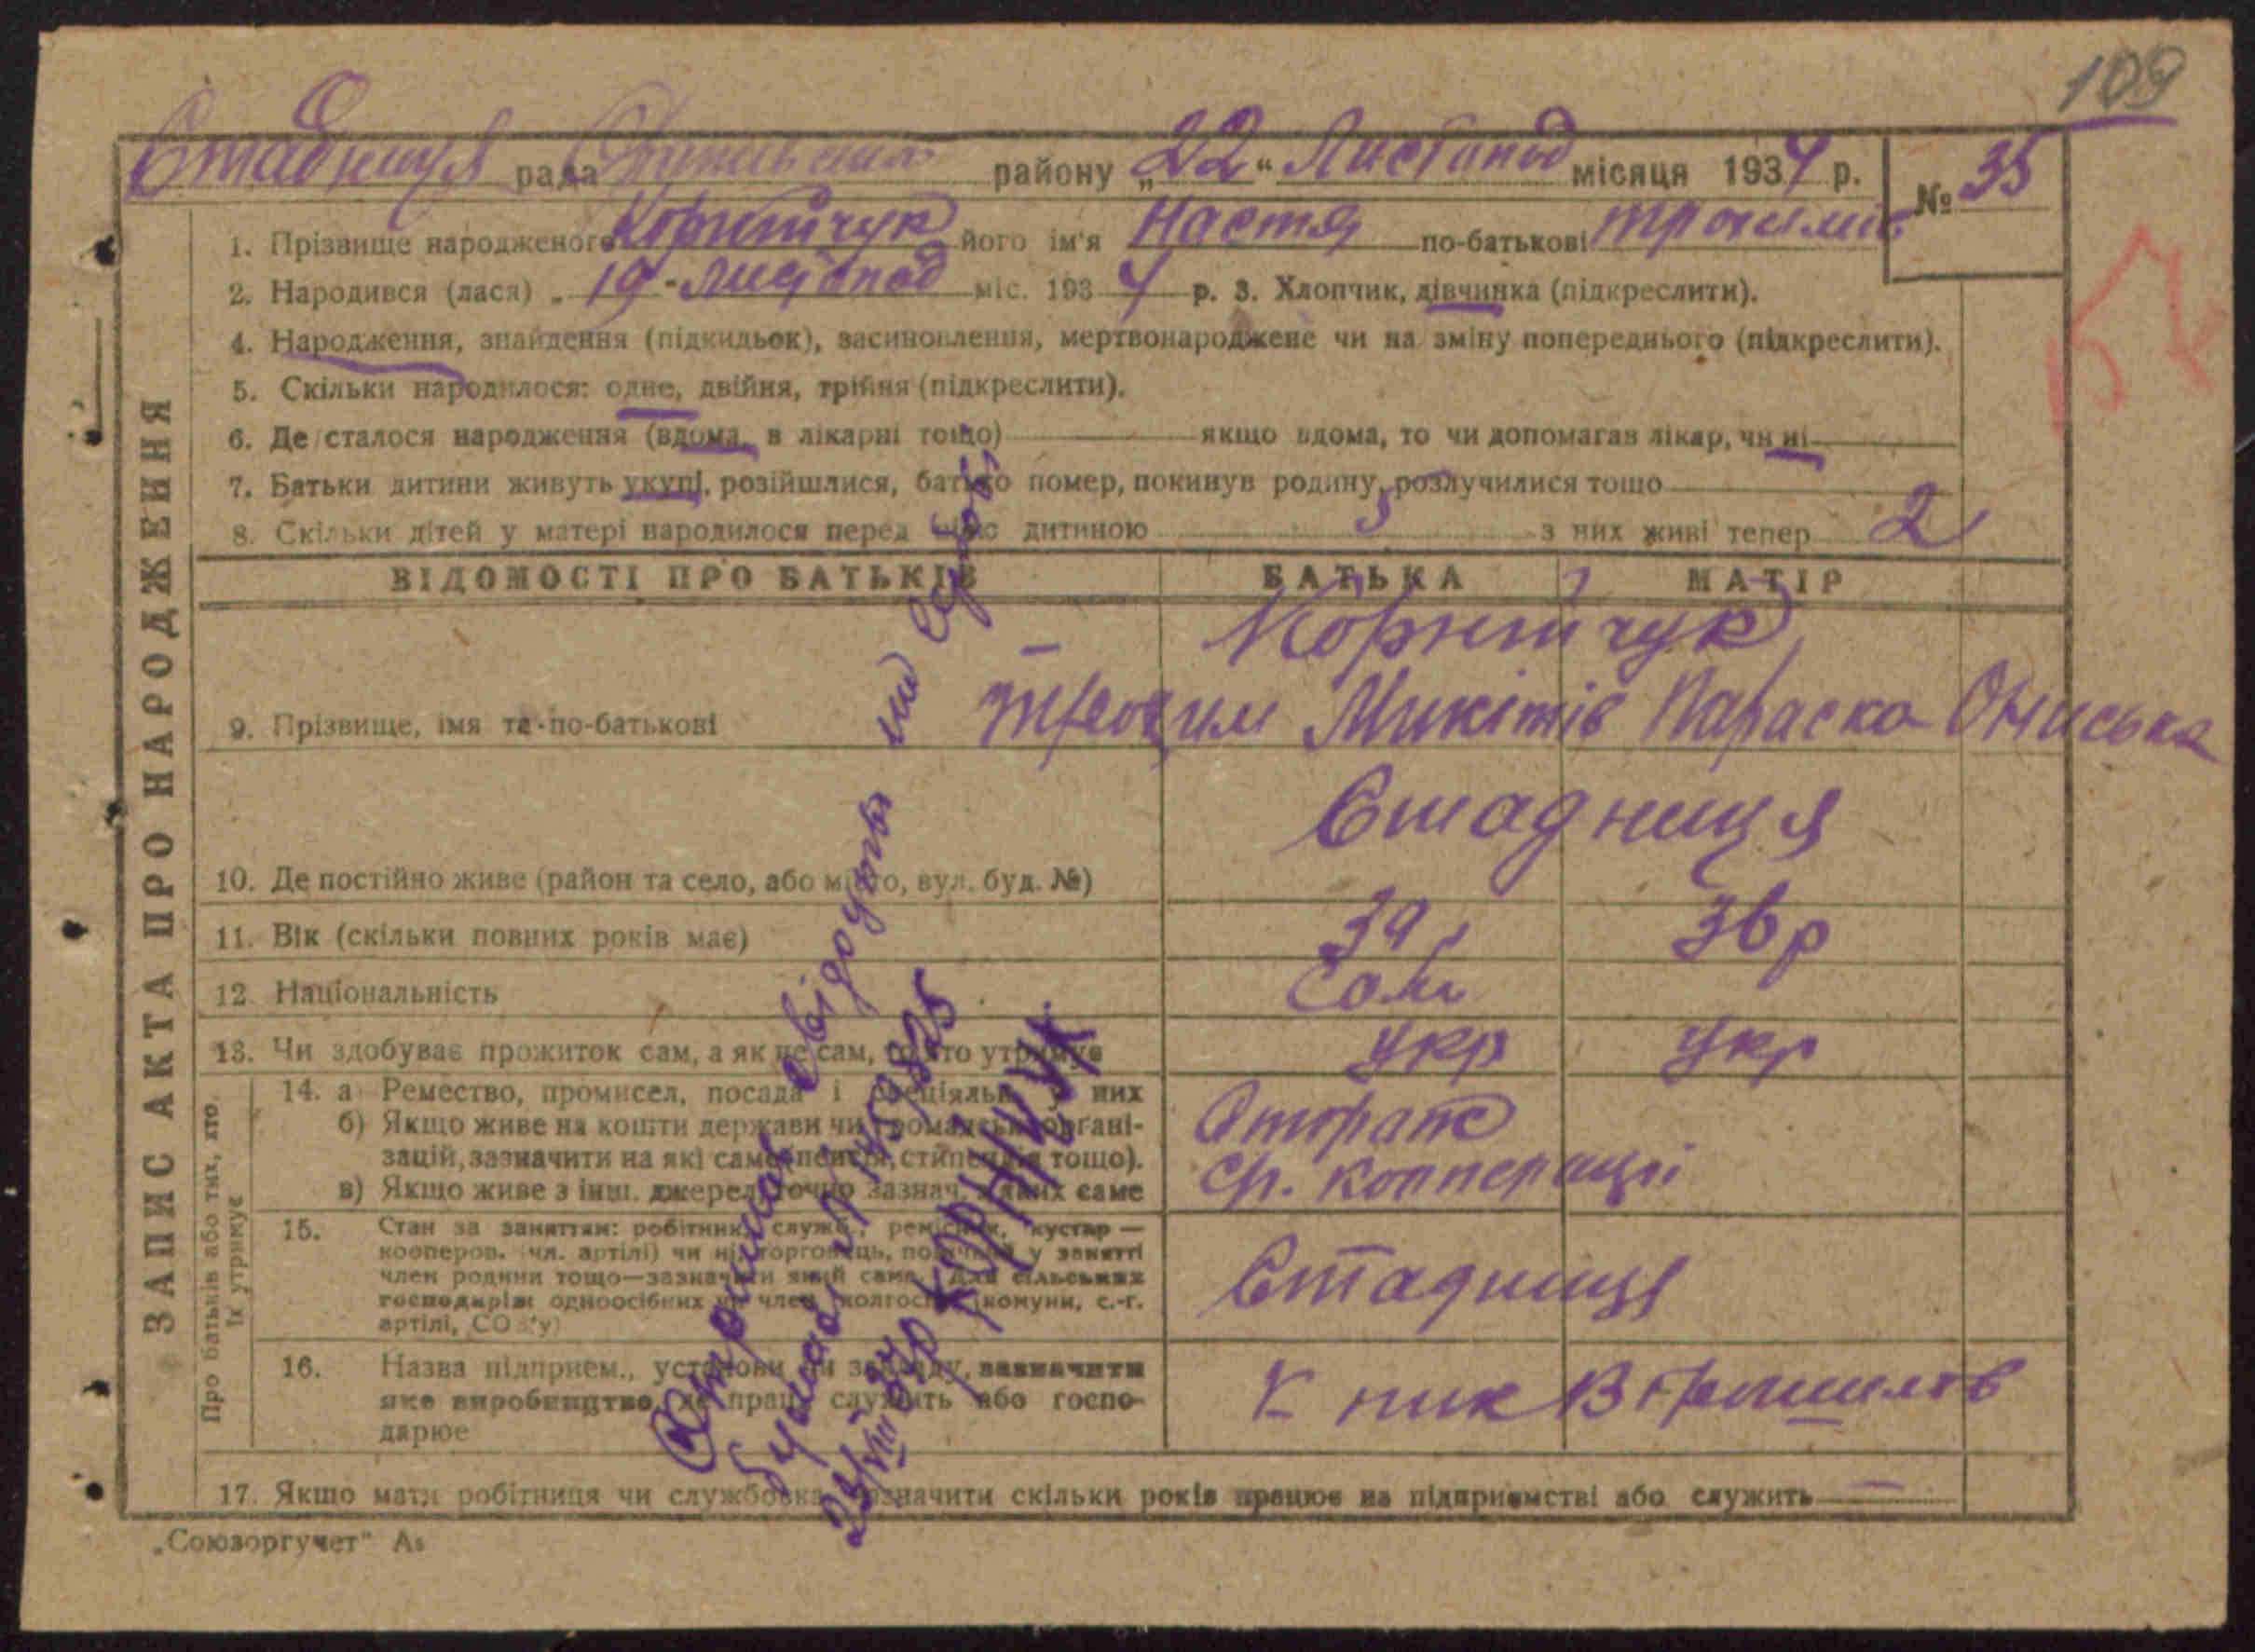 109
Стадниця рада району „22“ Листопад місяця 1934 р. № 35
1. Прізвище народженого Корнійчук його ім'я Настя по-батькові Трохимів
2. Народився (лася) „19“ листопад міс. 1934 р. 3. Хлопчик, дівчинка (підкреслити).
4. Народження, знайдення (підкидьок), засиновлення, мертвонароджене чи на зміну попереднього (підкреслити).
5. Скільки народилося: одне, двійня, трійня (підкреслити).
6. Де сталося народження (вдома, в лікарні тощо) якщо вдома, то чи допомагав лікар, чи ні
7. Батьки дитини живуть укупі, розійшлися, батько помер, покинув родину, розлучилися тощо
8. Скільки дітей у матері народилося перед цією дитиною 5 з них живі тепер 2
ЗАПИС АКТА ПРО НАРОДЖЕННЯ
ВІДОМОСТІ ПРО БАТЬКІВ БАТЬКА МАТІР
Корнійчук
9. Прізвище, імя та по-батькові Трохим Микітів Параска Ониська
Стадниця
10. Де постійно живе (район та село, або місто, вул. буд. №)
11. Вік (скільки повних років має) 39 р 36 р
12. Національність
13. Чи здобуває прожиток сам, а як не сам, то хто утримує укр укр
Про батьків або тих, хто їх утримує
14. а) Ремество, промисел, посада і спеціяльн. у них
б) Якщо живе на кошти держави чи громадськ. органі-
зацій, зазначити на які саме (пенсія, стипендія тощо).
в) Якщо живе з інш. джерел, точно зазнач. з яких саме
ср. кооперації
15. Стан за заняттям: робітник, службов., ремісник, кустар —
кооперов. (чл. артілі) чи ні, торговець, помічний у занятті
член родини тощо—зазначити який саме. Для сільських
господарів: одноосібних чи член колгоспу (комуни, с.-г.
артілі, СОЗ'у)
Стадниця
16. Назва підприєм., установи чи закладу, зазначити
яке виробництво, де працює, служить або госпо-
дарює
17. Якщо мати робітниця чи службовка зазначити скільки років працює на підприємстві або служить —
Отримав свідоцтво
КОРНІЙЧУК
„Союзоргучет“ А5